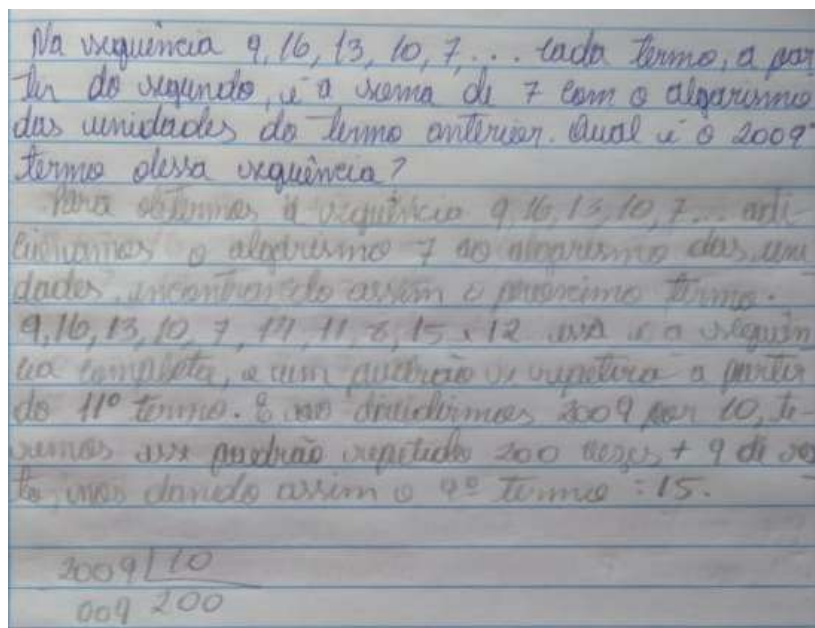 Na sequência 9, 16, 13, 10, 7, ... cada termo, a par
tir do segundo, é a soma de 7 com o algarismo
das unidades do termo anterior. Qual é o 2009º
termo dessa sequência?
Para obtermos a sequência 9, 16, 13, 10, 7... adi-
cionamos o algarismo 7 ao algarismo das uni
dades, encontrando assim o proximo termo.
9, 16, 13, 10, 7, 14, 11, 8, 15 e 12 essa é a sequên
cia completa, e um padrão se repetira a partir
do 11º termo. E ao dividirmos 2009 por 10, te-
remos esse padrão repetido 200 vezes + 9 de res
to, nos dando assim o 9º termo : 15.
2009 10
009 200